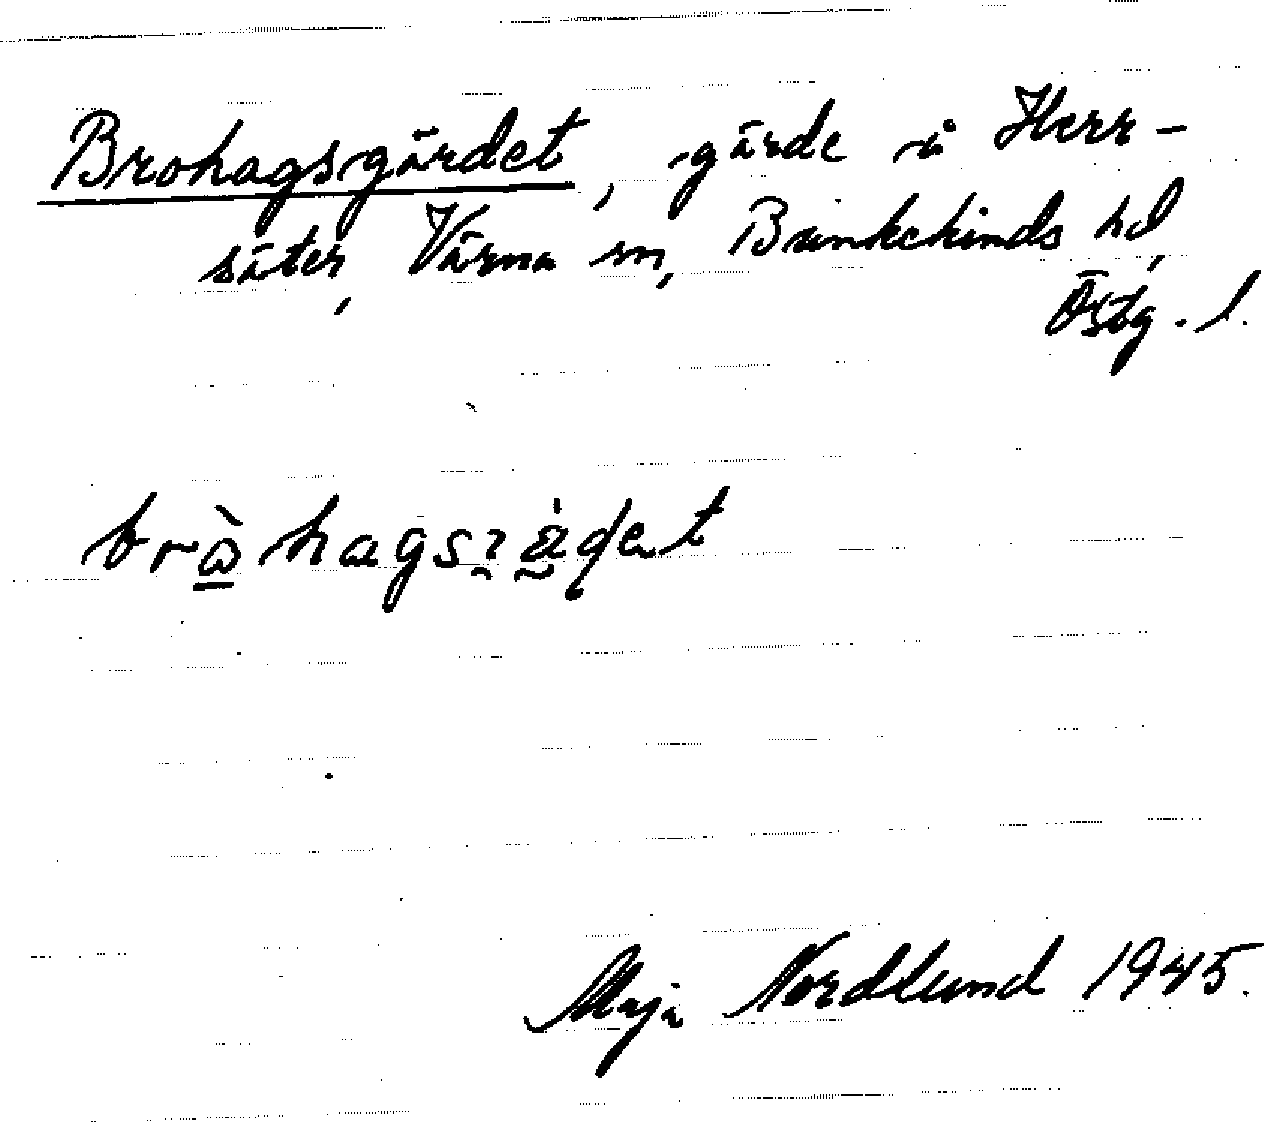 Brohagsgärdet, gärde å Herr-
säter, Värna sn, Bankekinds hd,
Östg. l.
brò̲hagsgǻdet
Maja Nordlund 1945.